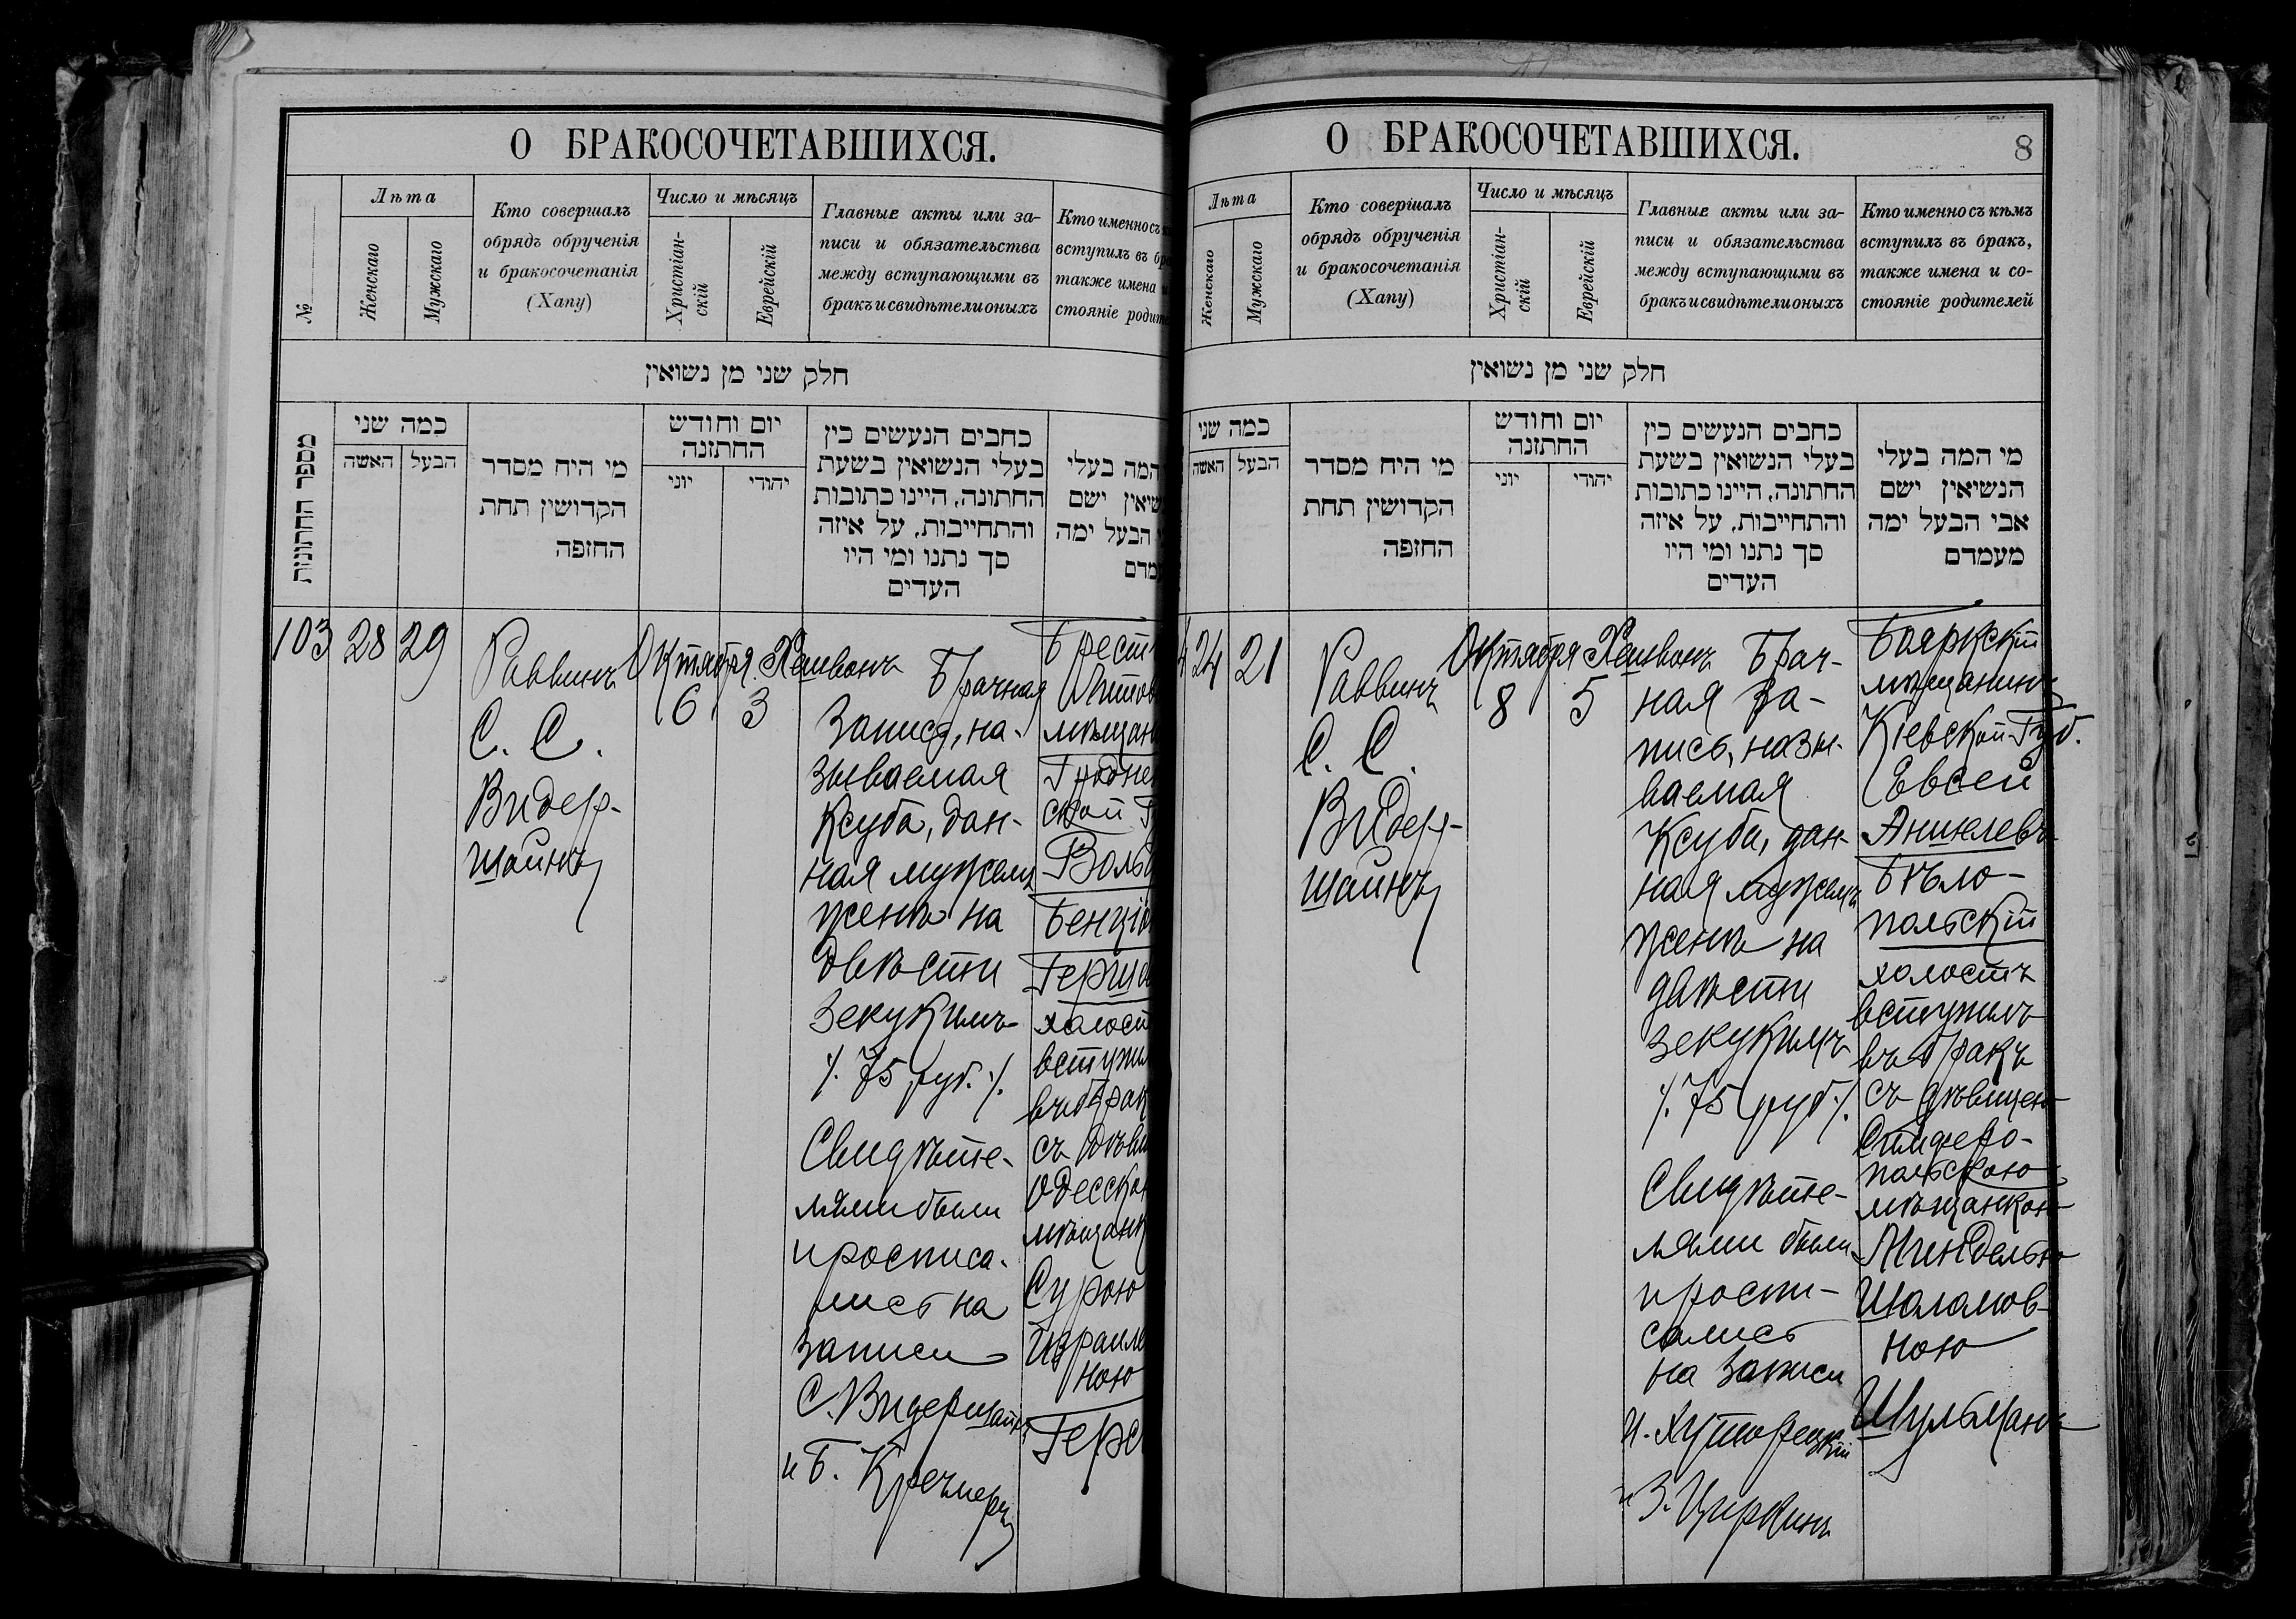 О БРАКОСОЧЕТАВШИХСЯ.
№
Лѣта
Женскаго
Мужскаго
Кто совершалъ
обрядъ обрученія
и бракосочетанія
(Хапу)
Число и мѣсяцъ
Христіан-
скій
Еврейскій
Главные акты или за-
писи и обязательства
между вступающими въ
бракъ и свидѣтели оныхъ
Кто именно съ
вступилъ въ
также имена
стояніе
חלק שני מן נשואין
מספר החתונות
כמה שני
האשה
הבעל
מי היח מסדר
הקדושין תחת
החזפה
יום וחודש
החתזנה
יוני
יהודי
כחבים הנעשים כין
בעלי הנשואין בשעת
החתונה, היינו כתובות
והתחייבות, על איזה
סך נתנו ומי היו
העדים
המה בעלי
ישם
הבעל ימה
103
28
29
Раввинъ
С. С.
Видер-
шайнъ
Октября
6
Хешвонъ
3
Брачная
запись, на-
зываемая
Ксуба, дан-
ная мужемъ
женѣ на
двѣсти
зекукимъ
/. 75 руб. /.
Свидѣте-
лями были
и росписа-
лись на
записи
С. Видершайнъ
и Б. Кречмеръ
Брест
Литов
мѣщан
Гродне
ской Г
Вольф
Бенціо
Герш
холост
вступил
въ брак
съ дѣви
Одесско
мѣщанк
Сурою
Израиле
ною
Герс
О БРАКОСОЧЕТАВШИХСЯ.
8
Лѣта
Женскаго
Мужскаго
Кто совершалъ
обрядъ обрученія
и бракосочетанія
(Хапу)
Число и мѣсяцъ
Христіан-
скій
Еврейскій
Главные акты или за-
писи и обязательства
между вступающими въ
бракъ и свидѣтели оныхъ
Кто именно съ кѣмъ
вступилъ въ бракъ,
также имена и со-
стояніе родителей
חלק שני מן נשואין
כמה שני
האשה
הבעל
מי היח מסדר
הקדושין תחת
החזפה
יום וחודש
החתזנה
יוני
יהודי
כחבים הנעשים כין
בעלי הנשואין בשעת
החתונה, היינו כתובות
והתחייבות, על איזה
סך נתנו ומי היו
העדים
מי המה בעלי
הנשיאין ישם
אבי הבעל ימה
מעמדם
24
21
Раввинъ
С. С.
Видер-
шайнъ
Октября
8
Хешвонъ
5
Брач-
ная за-
пись, назы-
ваемая
Ксуба, дан-
ная мужемъ
женѣ на
двѣсти
зекукимъ
/. 75 руб. /.
Свидѣте-
лями были
и роспи-
сались
на записи
И. Хуторецкій
и З. Циркинъ
Бояркскій
мѣщанинъ
Кіевской Губ.
Евсей
Аншелевъ
Бѣло-
польскій
холостъ
вступилъ
въ бракъ
съ дѣвицею
Симферо-
польскою
мѣщанкою
Миндельою
Шоломов-
ною
Шульманъ